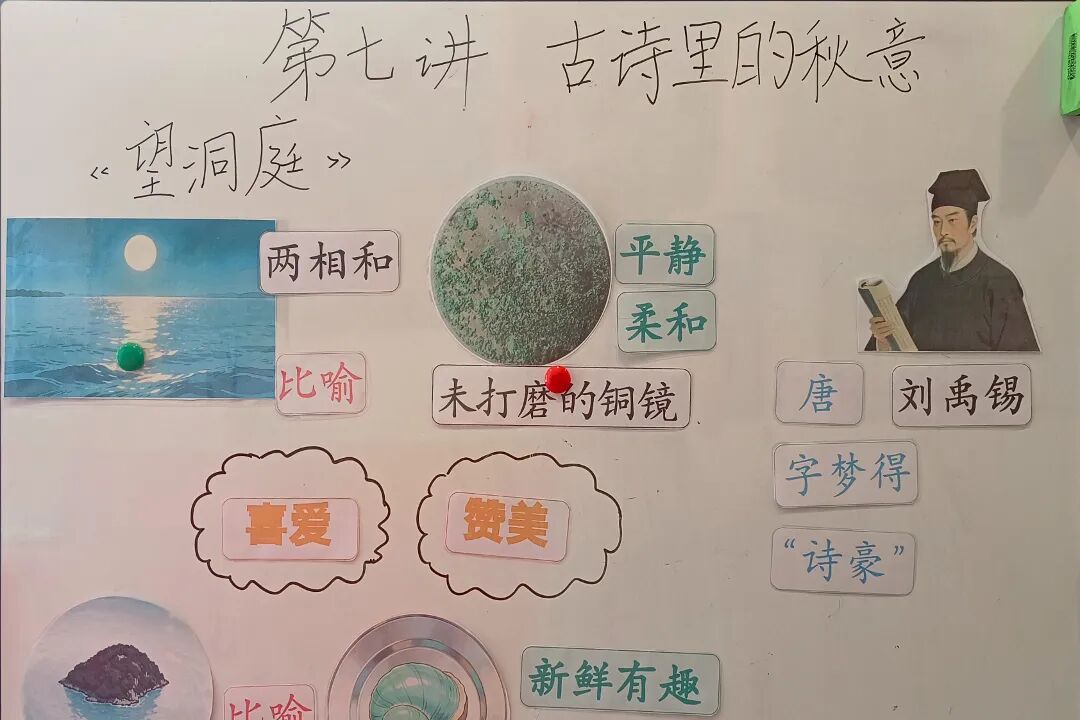 第七讲 古诗里的秋意
《望洞庭》
两相和
平静
柔和
比喻
未打磨的铜镜
唐
刘禹锡
字梦得
“诗豪”
喜爱
赞美
新鲜有趣
比喻